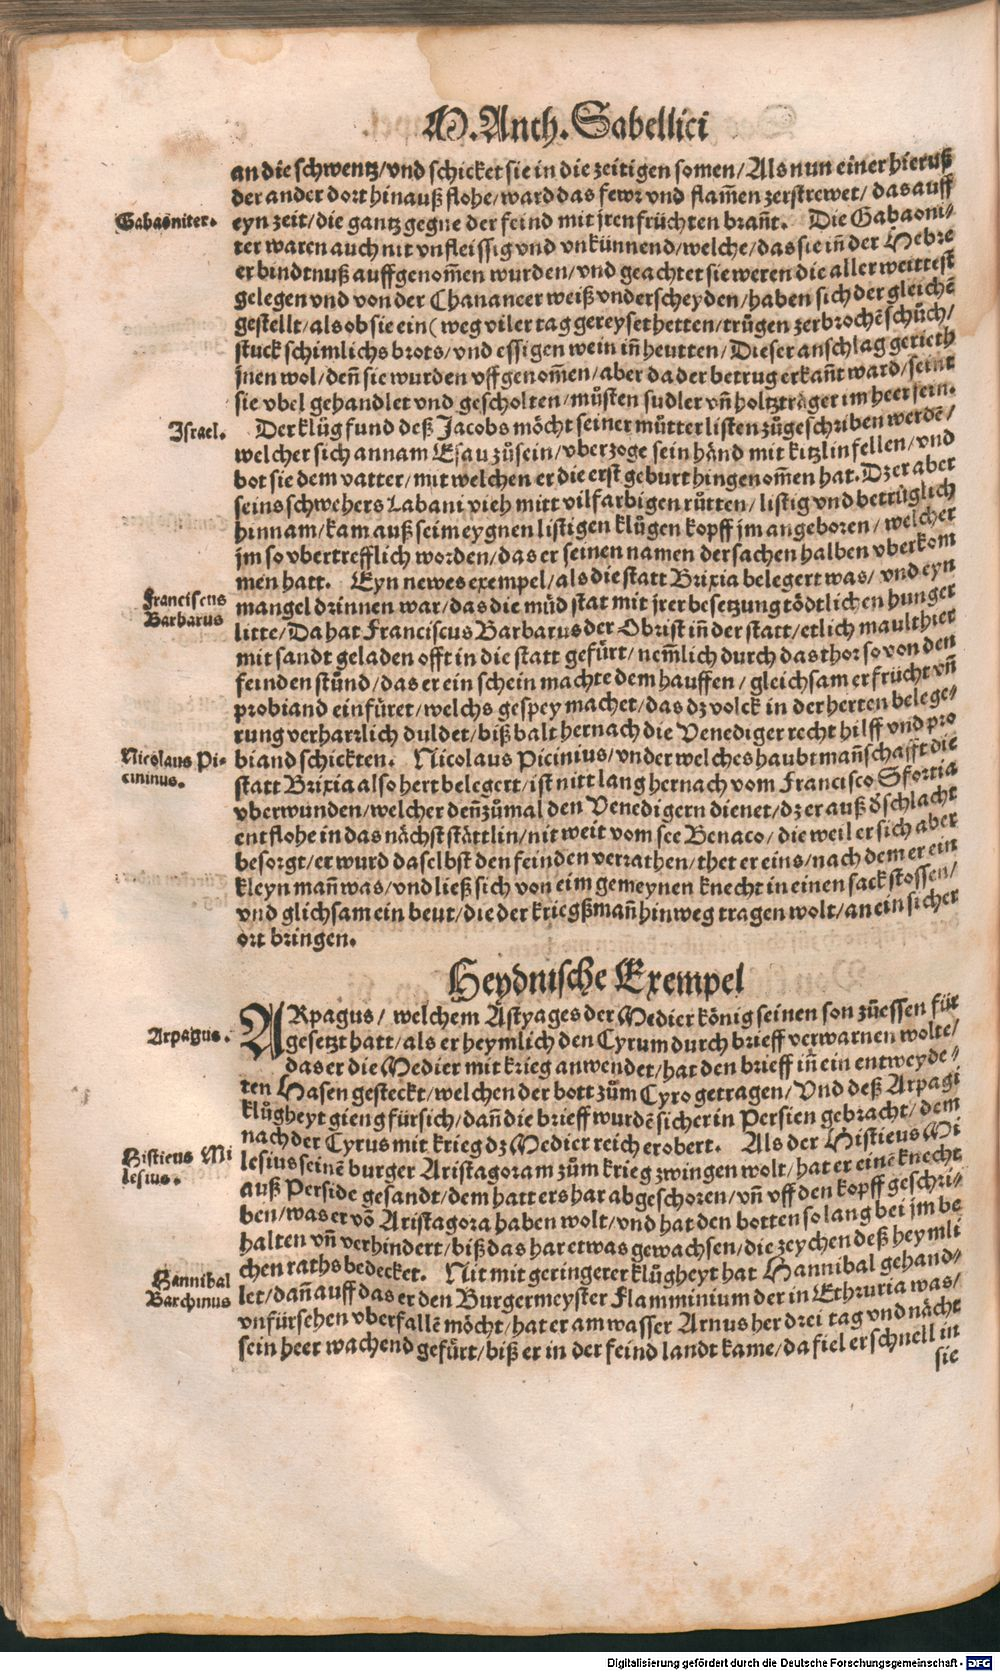 M. Anth. Sabellici
an die schwentz/vnd schicket sie in die zeitigen somen/Als nun einer hieruß
der ander dort hinauß flohe/ward das fewr vnd flam̄en zerstrewet/das auff
Gabaoniter.
eyn zeit/die gantz gegne der feind mit jren früchten brañt. Die Gabaoni-
ter waren auch nit vnfleissig vnd vnkünnend/welche/das sie iñ der Hebre
er bindtnuß auffgenom̄en wurden/vnd geachtet sie weren die aller weittest
gelegen vnd von der Chananeer weiß vnderscheyden/haben sich der gleichē
gestellt/als ob sie ein (weg viler tag gereyset hetten/trügen zerbrochē schůch/
stuck schimlichs brots/vnd essigen wein iñ heutten/Dieser anschlag gerieth
jnen wol/deñ sie wurden vffgenom̄en/aber da der betrug erkañt ward/seint
sie vbel gehandlet vnd gescholten/můsten sudler vñ holtzträger im heer sein.
Israel.
Der klůg fund deß Jacobs möcht seiner můtter listen zůgeschriben werdē/
welcher sich annam Esau zůsein/vberzoge sein händ mit kitzlin fellen/vnd
bot sie dem vatter/mit welchen er die erst geburt hingenom̄en hat. Dz er aber
seins schwehers Labani vieh mitt vilfarbigen růtten/listig vnd betrůglich
hinnam/kam auß seim eygnen listigen klůgen kopff jm angeboren/welcher
jm so vbertrefflich worden/das er seinen namen der sachen halben vberkom
men hatt. Eyn newes exempel/als die statt Brixia belegert was/vnd eyn
Franciscus
Barbarus
mangel drinnen war/das die můd stat mit jrer besetzung tödtlichen hunger
litte/Da hat Franciscus Barbarus der Obrist iñ der statt/etlich maulthier
mit sandt geladen offt in die statt gefürt/nem̄lich durch das thor so von den
feinden stůnd/das er ein schein machte dem hauffen/gleichsam er frücht vñ
probiand einfüret/welchs gespey machet/das dz volck in der herten belege-
rung verharrlich duldet/biß balt hernach die Venediger recht hilff vnd pro
Nicolaus Pi-
cininus.
biand schickten. Nicolaus Picinius/vnder welches haubtmañschafft die
statt Brixia also hert belegert/ist nitt lang hernach vom Francisco Sfortia
vberwunden/welcher deñzůmal den Venedigern dienet/dz er auß ð schlacht
entflohe in das nächst stättlin/nit weit vom see Benaco/die weil er sich aber
besorgt/er wurd daselbst den feinden verrathen/thet er eins/nach dem er ein
kleyn mañ was/vnd ließ sich von eim gemeynen knecht in einen sack stossen/
vnd glichsam ein beut/die der kriegßmañ hinweg tragen wolt/an ein sicher
ort bringen.
Heydnische Exempel
Arpagus.
ARpagus/welchem Astyages der Medier könig seinen son zůessen für
gesetzt hatt/als er heymlich den Cyrum durch brieff verwarnen wolte/
das er die Medier mit krieg anwendet/hat den brieff iñ ein entweyde-
ten Hasen gesteckt/welchen der bott zům Cyro getragen/Vnd deß Arpagi
klůgheyt gieng fürsich/dañ die brieff wurdē sicher in Persien gebracht/dem
nach der Cyrus mit krieg dz Medier reich erobert. Als der Histieus Mi
Histieus Mi
lesius.
lesius seinē burger Aristagoram zům krieg zwingen wolt/hat er einē knecht
auß Perside gesandt/dem hatt ers har abgeschoren/vñ vff den kopff geschri-
ben/was er vō Aristagora haben wolt/vnd hat den botten so lang bei jm be
halten vñ verhindert/biß das har etwas gewachsen/die zeychen deß heymli
chen raths bedecket. Nit mit geringerer klůgheyt hat Hannibal gehand-
Hannibal
Barchinus
let/dañ auff das er den Burgermeyster Flamminium der in Ethruria was/
vnfürsehen vberfallē möcht/hat er am wasser Arnus her drei tag vnd nächt
sein heer wachend gefürt/biß er in der feind landt kame/da fiel er schnell in
sie
Digitalisierung gefördert durch die Deutsche Forschungsgemeinschaft - DFG